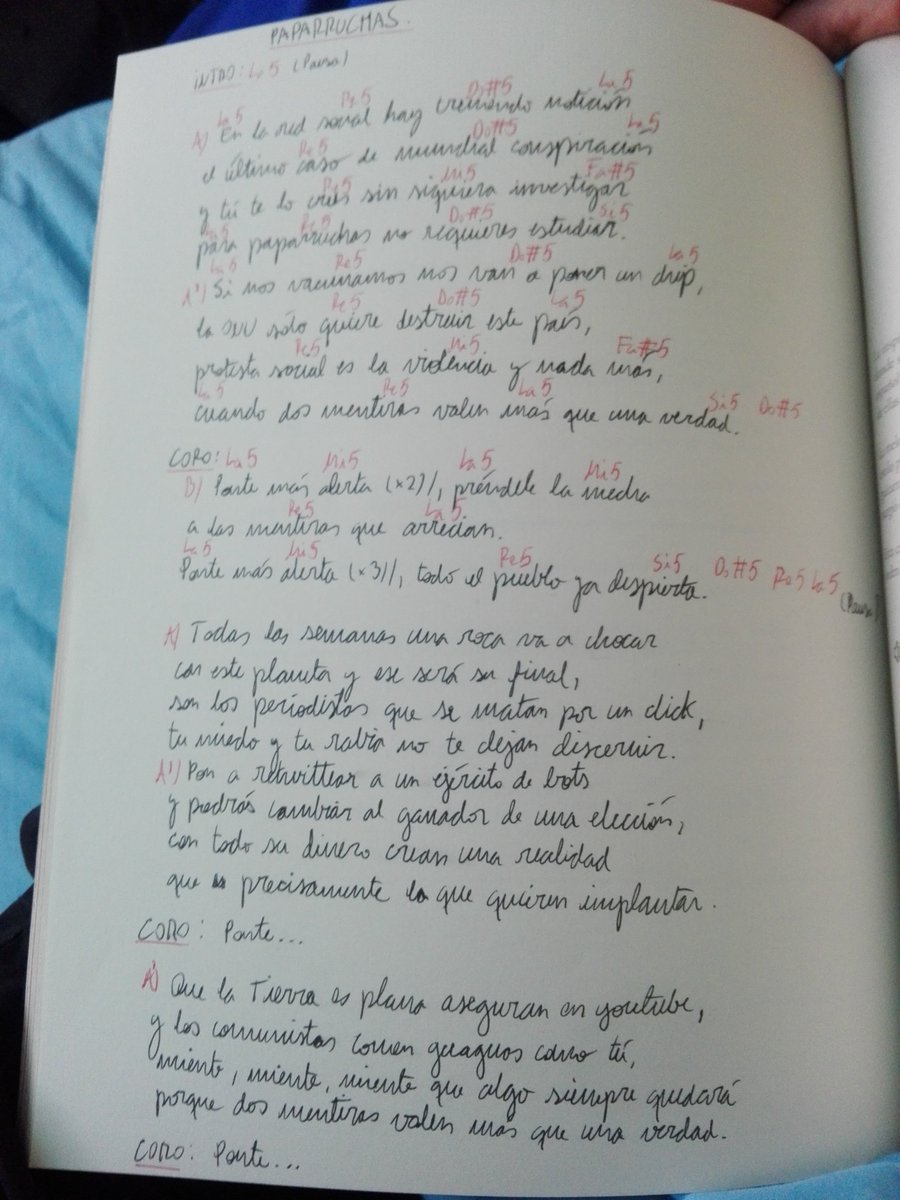 PAPARRUCHAS.
INTRO: La 5 (Pausa)
La 5 Re 5 Do#5 La 5
A) En la red social hay tremendo notición
Re 5 Do#5 La 5
el último caso de mundial conspiración
Re 5 Mi 5 Fa#5
y tú te lo crees sin siquiera investigar
La 5 Re 5 Do#5 Si 5
para paparruchas no requieres estudiar.
La 5 Re 5 Do#5 La 5
A') Si nos vacunamos nos van a poner un chip,
Re 5 Do#5 La 5
la ONU sólo quiere destruir este país,
Re 5 Mi 5 Fa#5
protesta social es la violencia y nada más,
La 5 Re 5 La 5 Si 5 Do#5
cuando dos mentiras valen más que una verdad.
CORO: La 5 Mi 5 La 5 Mi 5
B) Ponte más alerta (x2)/, préndele la mecha
Re 5 La 5
a las mentiras que arrecian.
La 5 Mi 5 Re 5 Si 5 Do#5 Re 5 La 5
Ponte más alerta (x3)/, todo el pueblo ya despierta. (Pausa)
A) Todas las semanas una roca va a chocar
con este planeta y ese será su final,
son los periodistas que se matan por un click,
tu miedo y tu rabia no te dejan discernir.
A') Pon a retwittear a un ejército de bots
y podrás cambiar al ganador de una elección,
con todo su dinero crean una realidad
que es precisamente la que quieren implantar.
CORO: Ponte...
A') Que la Tierra es plana aseguran en youtube,
y los comunistas comen guaguas como tú,
miente, miente, miente que algo siempre quedará
porque dos mentiras valen más que una verdad.
CORO: Ponte...